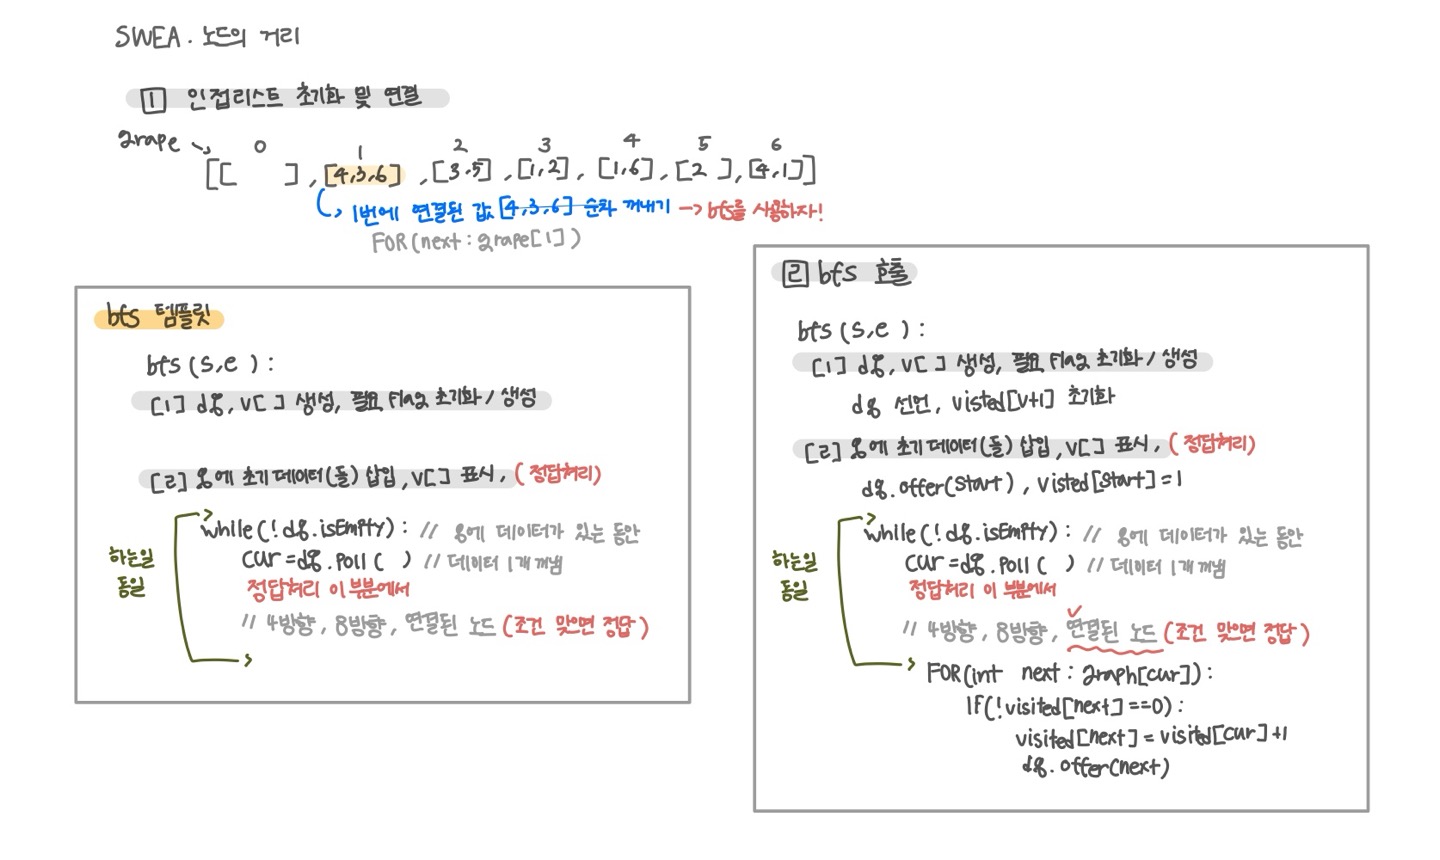 SWEA. 노드의 거리
1 인접리스트 초기화 및 연결
grape
0 1 2 3 4 5 6
[[ ], [4,3,6], [3,5], [1,2], [1,6], [2], [4,1]]
1번에 연결된 값 [4,3,6] 순차 꺼내기 → bfs를 사용하자!
FOR(next : grape[1])
bfs 템플릿
bfs (s,e) :
[1] dq, v[ ] 생성, 필요 Flag 초기화 / 생성
[2] q에 초기 데이터(들) 삽입, v[ ] 표시, (정답처리)
while(!dq.isEmpty) : // q에 데이터가 있는 동안
하는일
동일
cur = dq.poll( ) // 데이터 1개 꺼냄
정답처리 이 부분에서
// 4방향, 8방향, 연결된 노드 (조건 맞으면 정답)
2 bfs 호출
bfs (s,e) :
[1] dq, v[ ] 생성, 필요 Flag 초기화 / 생성
dq 선언, visted[v+1] 초기화
[2] q에 초기 데이터(들) 삽입, v[ ] 표시, (정답처리)
dq.offer(start), visted[start]=1
while(!dq.isEmpty) : // q에 데이터가 있는 동안
하는일
동일
cur = dq.poll( ) // 데이터 1개 꺼냄
정답처리 이 부분에서
// 4방향, 8방향, 연결된 노드 (조건 맞으면 정답)
FOR(int next : graph[cur]) :
If(!visited[next]==0) :
visited[next] = visited[cur]+1
dq.offer(next)